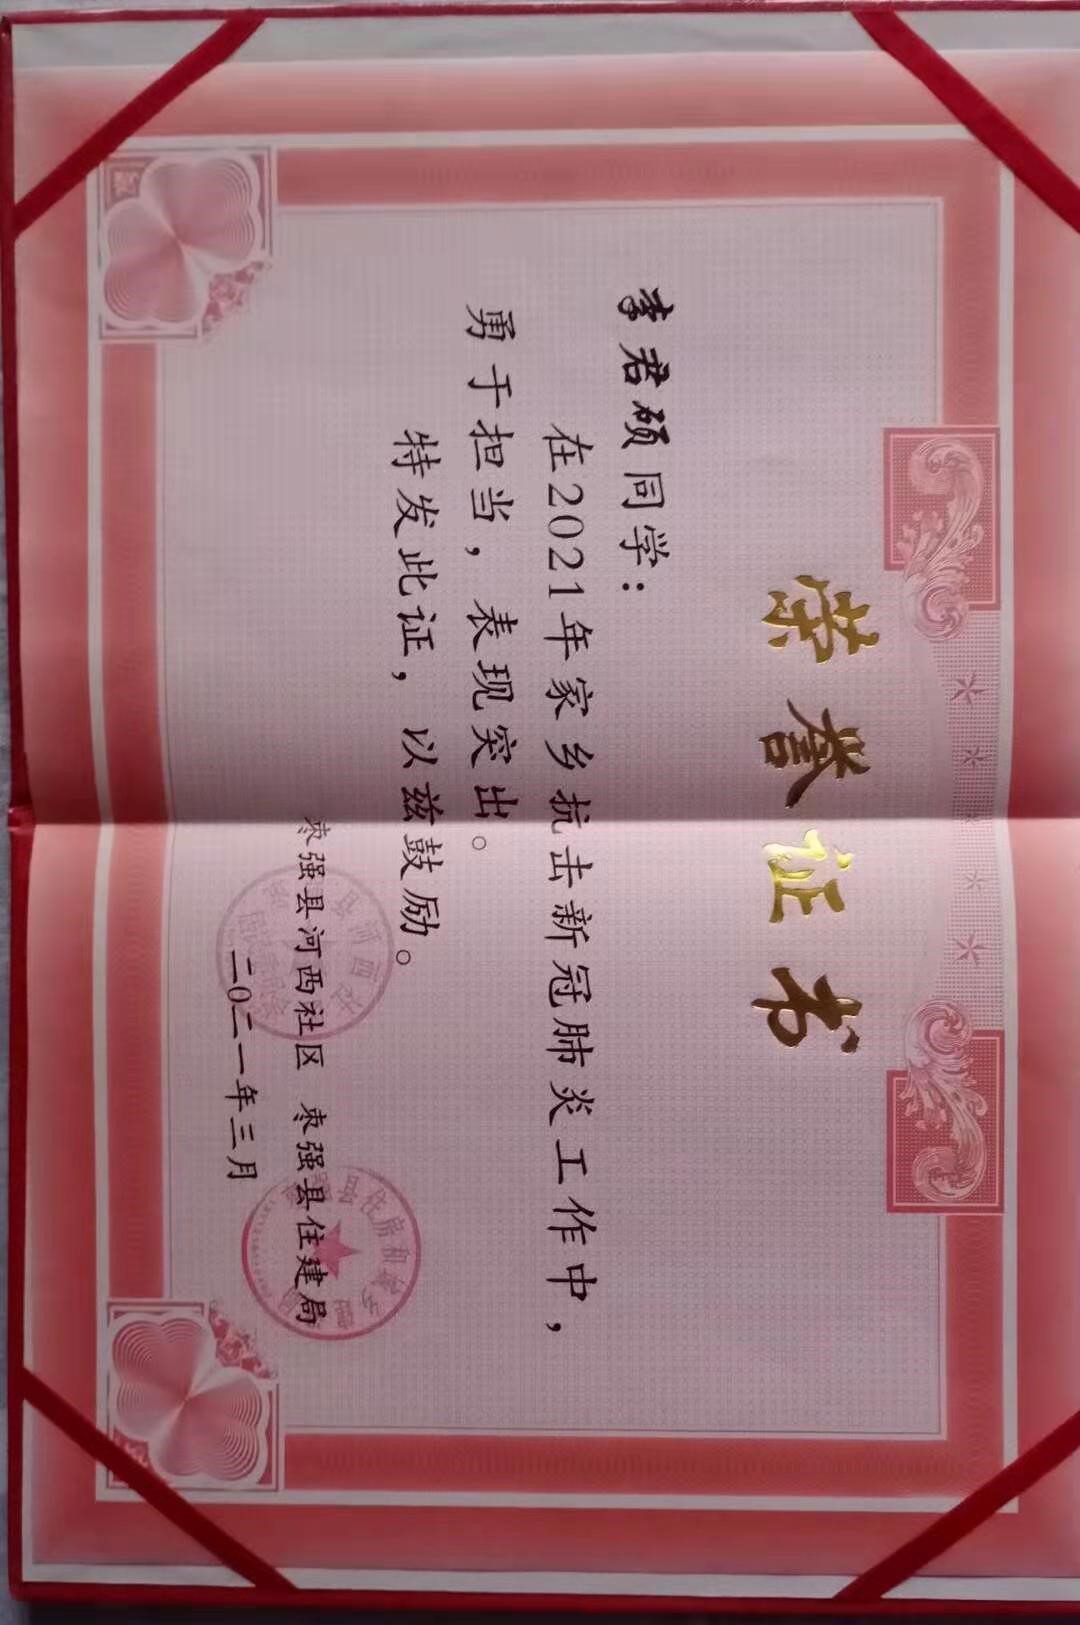 荣誉证书
李君硕同学：
在2021年家乡抗击新冠肺炎工作中，
勇于担当，表现突出。
特发此证，以兹鼓励。
枣强县河西社区 枣强县住建局
二〇二一年三月
县河西社
县住房和城乡建